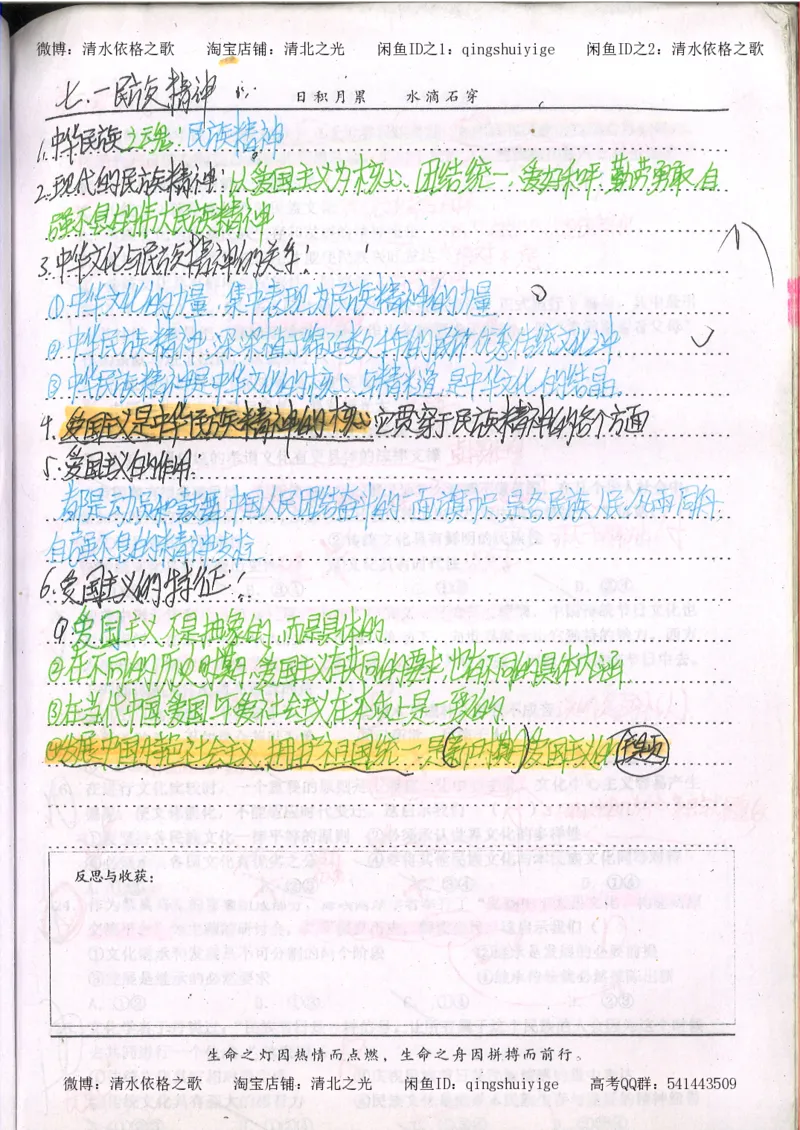 微博：清水依格之歌 淘宝店铺：清北之光 闲鱼ID之1：qingshuiyige 闲鱼ID之2：清水依格之歌
七.一民族精神
日积月累 水滴石穿
1.中华民族之魂：民族精神
2.现代的民族精神：以爱国主义为核心、团结统一、爱好和平、勤劳勇敢、自
强不息的伟大民族精神
3.中华文化与民族精神的关系：
①中华文化的力量，集中表现为民族精神的力量
②中华民族精神，深深植于绵延数千年的民族优秀传统文化之中
③中华民族精神是中华文化的核心与精髓，是中华文化的结晶。
4.爱国主义是中华民族精神的核心，它贯穿于民族精神的各个方面
5.爱国主义的作用
都是动员和鼓舞中国人民团结奋斗的一面旗帜，是各民族人民风雨同舟
自强不息的精神支柱
6.爱国主义的特征：
①爱国主义不是抽象的，而是具体的
②在不同的历史时期，爱国主义有共同的要求，也有不同的具体内涵
③在当代中国，爱国与爱社会主义在本质上是一致的
④发展中国特色社会主义，拥护祖国统一是(新时期)爱国主义的主题
反思与收获：
生命之灯因热情而点燃，生命之舟因拼搏而前行。
微博：清水依格之歌 淘宝店铺：清北之光 闲鱼ID：qingshuiyige 高考QQ群：541443509